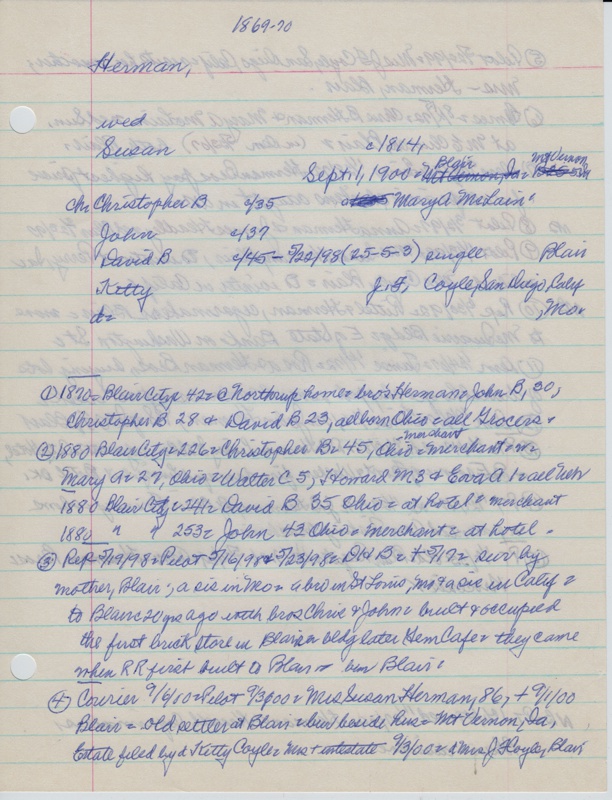 1869-70
Herman,
wed
Susan c1814,
Sept. 1, 1900 = Blair Mt Vernon, Ia = Mt Vernon
ch: Christopher B c/35 Mary A McLain
John c/37
David B c/45 - 5/22/98 (25-5-3) single Blair
Kitty J. F. Coyle, San Diego, Calif
d= , Mo.
① 1870 = Blair City = 42 = C Northrup home = bros Herman = John B, 30;
Christopher B 28 & David B 23, all born Ohio = all Grocers.
② 1880 Blair City = 226 = Christopher B = 45, Ohio = merchant = m
merchant
Mary A = 27, Ohio = Walter C 5, Howard M 3 & Eva A 1 = all Neb
1880 Blair City = 241 = David B 35 Ohio = at hotel = merchant
1880 " " 253 = John 43 Ohio = merchant = at hotel.
③ Rep 5/19/98 = Pilot 5/16/98 & 5/23/98 = David B = + 5/17 = surv by
mother, Blair; a sis in Mo = a bro in St Louis, Mo & a sis in Calif =
to Blair 20 yrs ago with bros Chris & John = built & occupied
the first brick store in Blair = bldg later Hem Cafe = they came
when RR first built to Blair = bur Blair.
④ Courier 9/6/00 = Pilot 9/3/00 = Mrs Susan Herman, 86, + 9/1/00
Blair = old settler at Blair = bur beside hus = Mt Vernon, Ia,
Estate filed by d Kitty Coyle = Mrs + intestate 9/3/00 = d Mrs J F Coyle, Blair